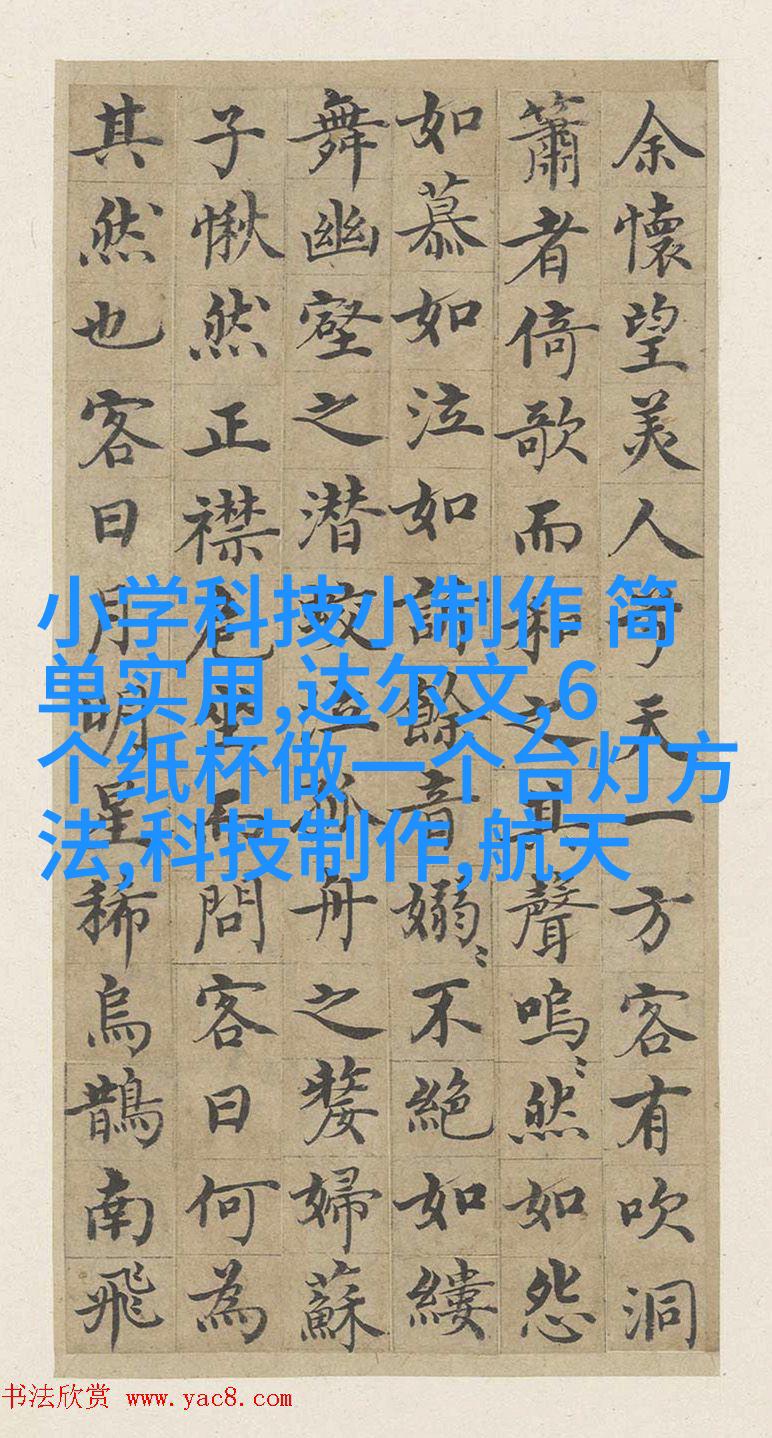 余懷望美人兮天一方客有吹洞
簫者倚歌而和之其聲嗚〻然如怨
如慕如泣如訴餘音嫋〻不絶如縷
舞幽壑之潜蛟泣孤舟之嫠婦蘇
子愀然正襟危坐而問客曰何為
其然也客曰月明星稀烏鵲南飛
小学科技小制作 简
单实用,达尔文,6
个纸杯做一个台灯方
法,科技制作,航天
书法欣赏 www.yac8.com